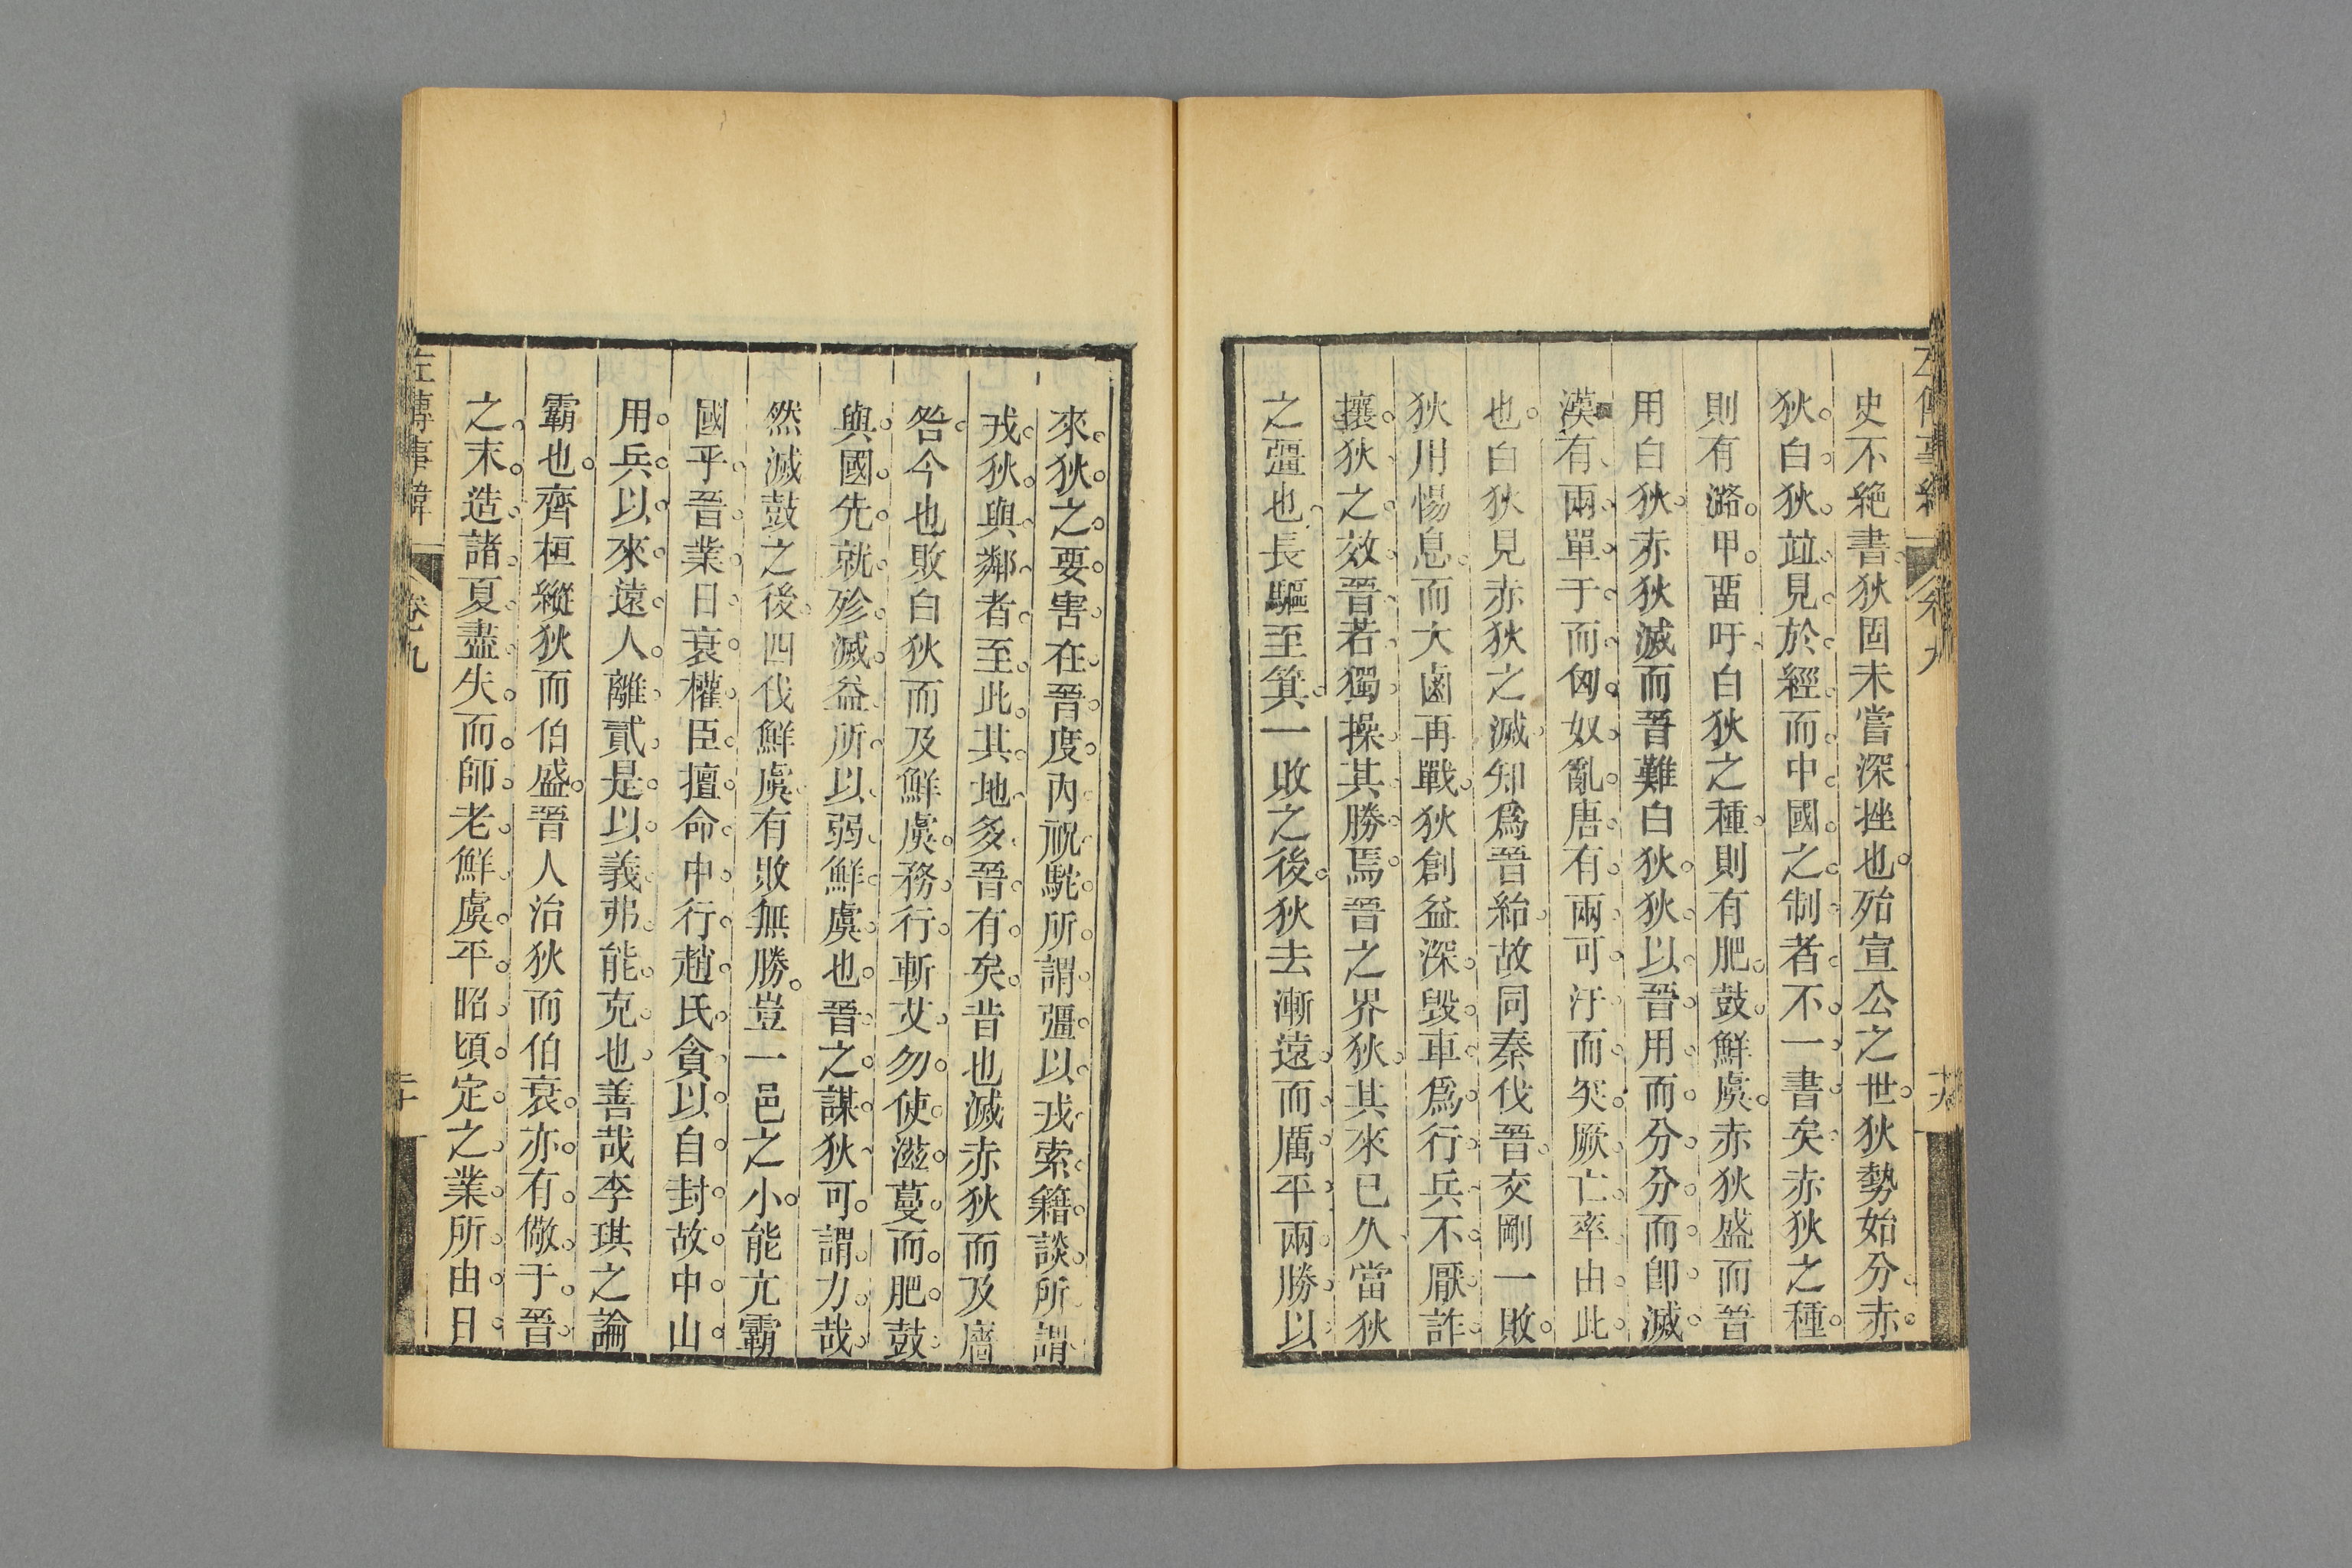 史不絶書狄固未嘗深挫也殆宣公之世狄勢始分赤
狄白狄竝見於經而中國之制者不一書矣赤狄之種
則有潞甲畱吁白狄之種則有肥鼓鮮虞赤狄盛而晉
用白狄赤狄滅而晉難白狄狄以晉用而分分而卽滅
漢有兩單于而匈奴亂唐有兩可汙而突厥亡率由此
也白狄見赤狄之滅知爲晉紿故同秦伐晉交剛一敗
狄用惕息而大鹵再戰狄創益深毀車爲行兵不厭詐
攘狄之效晉若獨操其勝焉晉之界狄其來已久當狄
之彊也長驅至箕一敗之後狄去漸遠而厲平兩勝以
左傳事緯
卷九
來狄之要害在晉度內祝駝所謂彊以戎索籍談所謂
戎狄與鄰者至此其地多晉有矣昔也滅赤狄而及廧
咎今也敗白狄而及鮮虞務行斬艾勿使滋蔓而肥鼓
與國先就殄滅益所以弱鮮虞也晉之謀狄可謂力哉
然滅鼓之後四伐鮮虞有敗無勝豈一邑之小能亢霸
國乎晉業日衰權臣擅命中行趙氏貪以自封故中山
用兵以來遠人離貳是以義弗能克也善哉李琪之論
霸也齊桓縱狄而伯盛晉人治狄而伯衰亦有儆于晉
之末造諸夏盡失而師老鮮虞平昭頃定之業所由日
左傳事緯
卷九